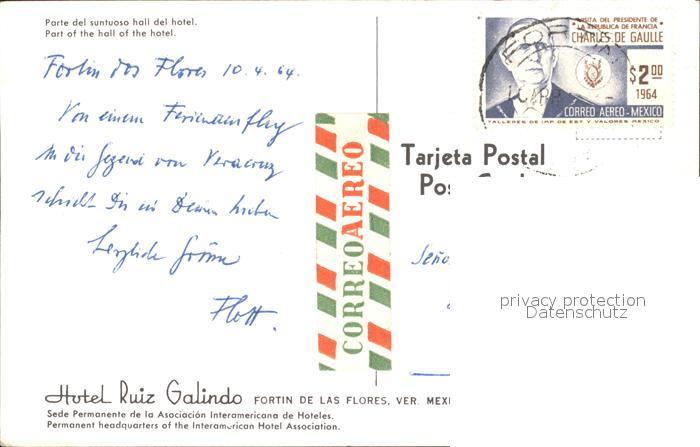 Parte del suntuoso hall del hotel.
Part of the hall of the hotel.
Fortin dos Flores 10.4.64.
Von einem Ferienausflug
in die Gegend von Veracruz
schickt Dir und Deinen lieben
herzliche Grüsse
VISITA DEL PRESIDENTE DE
LA REPUBLICA DE FRANCIA
CHARLES DE GAULLE
$2.00
1964
CORREO AEREO-MEXICO
TALLERES DE IMP DE EST Y VALORES MEXICO
CORREO AEREO
Tarjeta Postal
Pos
Seño
privacy protection
Datenschutz
Hotel Ruiz Galindo FORTIN DE LAS FLORES, VER. MEXI
Sede Permanente de la Asociación Interamericana de Hoteles.
Permanent headquarters of the Interamerican Hotel Association.